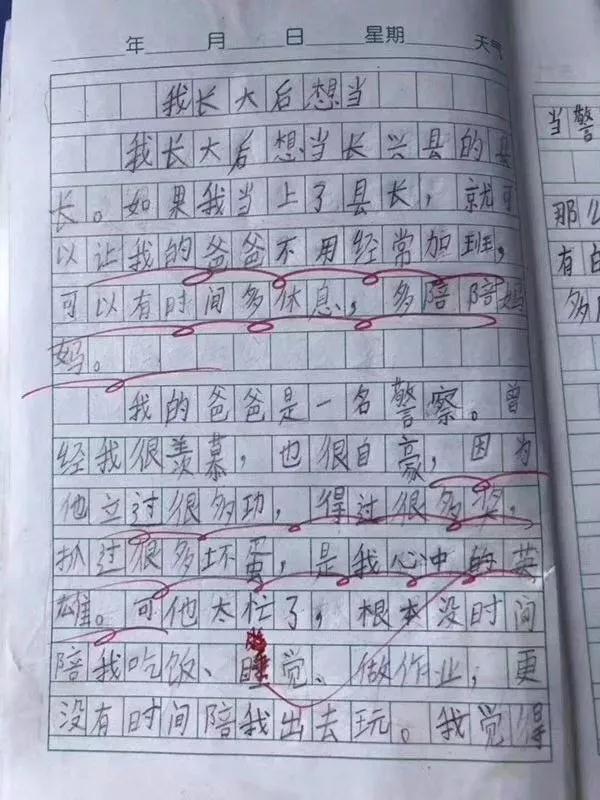 年 月 日 星期 天气
我长大后想当
我长大后想当长兴县的县
长。如果我当上了县长，就可
以让我的爸爸不用经常加班，
可以有时间多休息，多陪陪妈
妈。
我的爸爸是一名警察。曾
经我很羡慕，也很自豪，因为
他立过很多功，得过很多奖，
扒过很多坏蛋，是我心中的英
雄。可他太忙了，根本没时间
陪我吃饭、睡觉、做作业，更
没有时间陪我出去玩。我觉得
当警
那么
有白
多陪